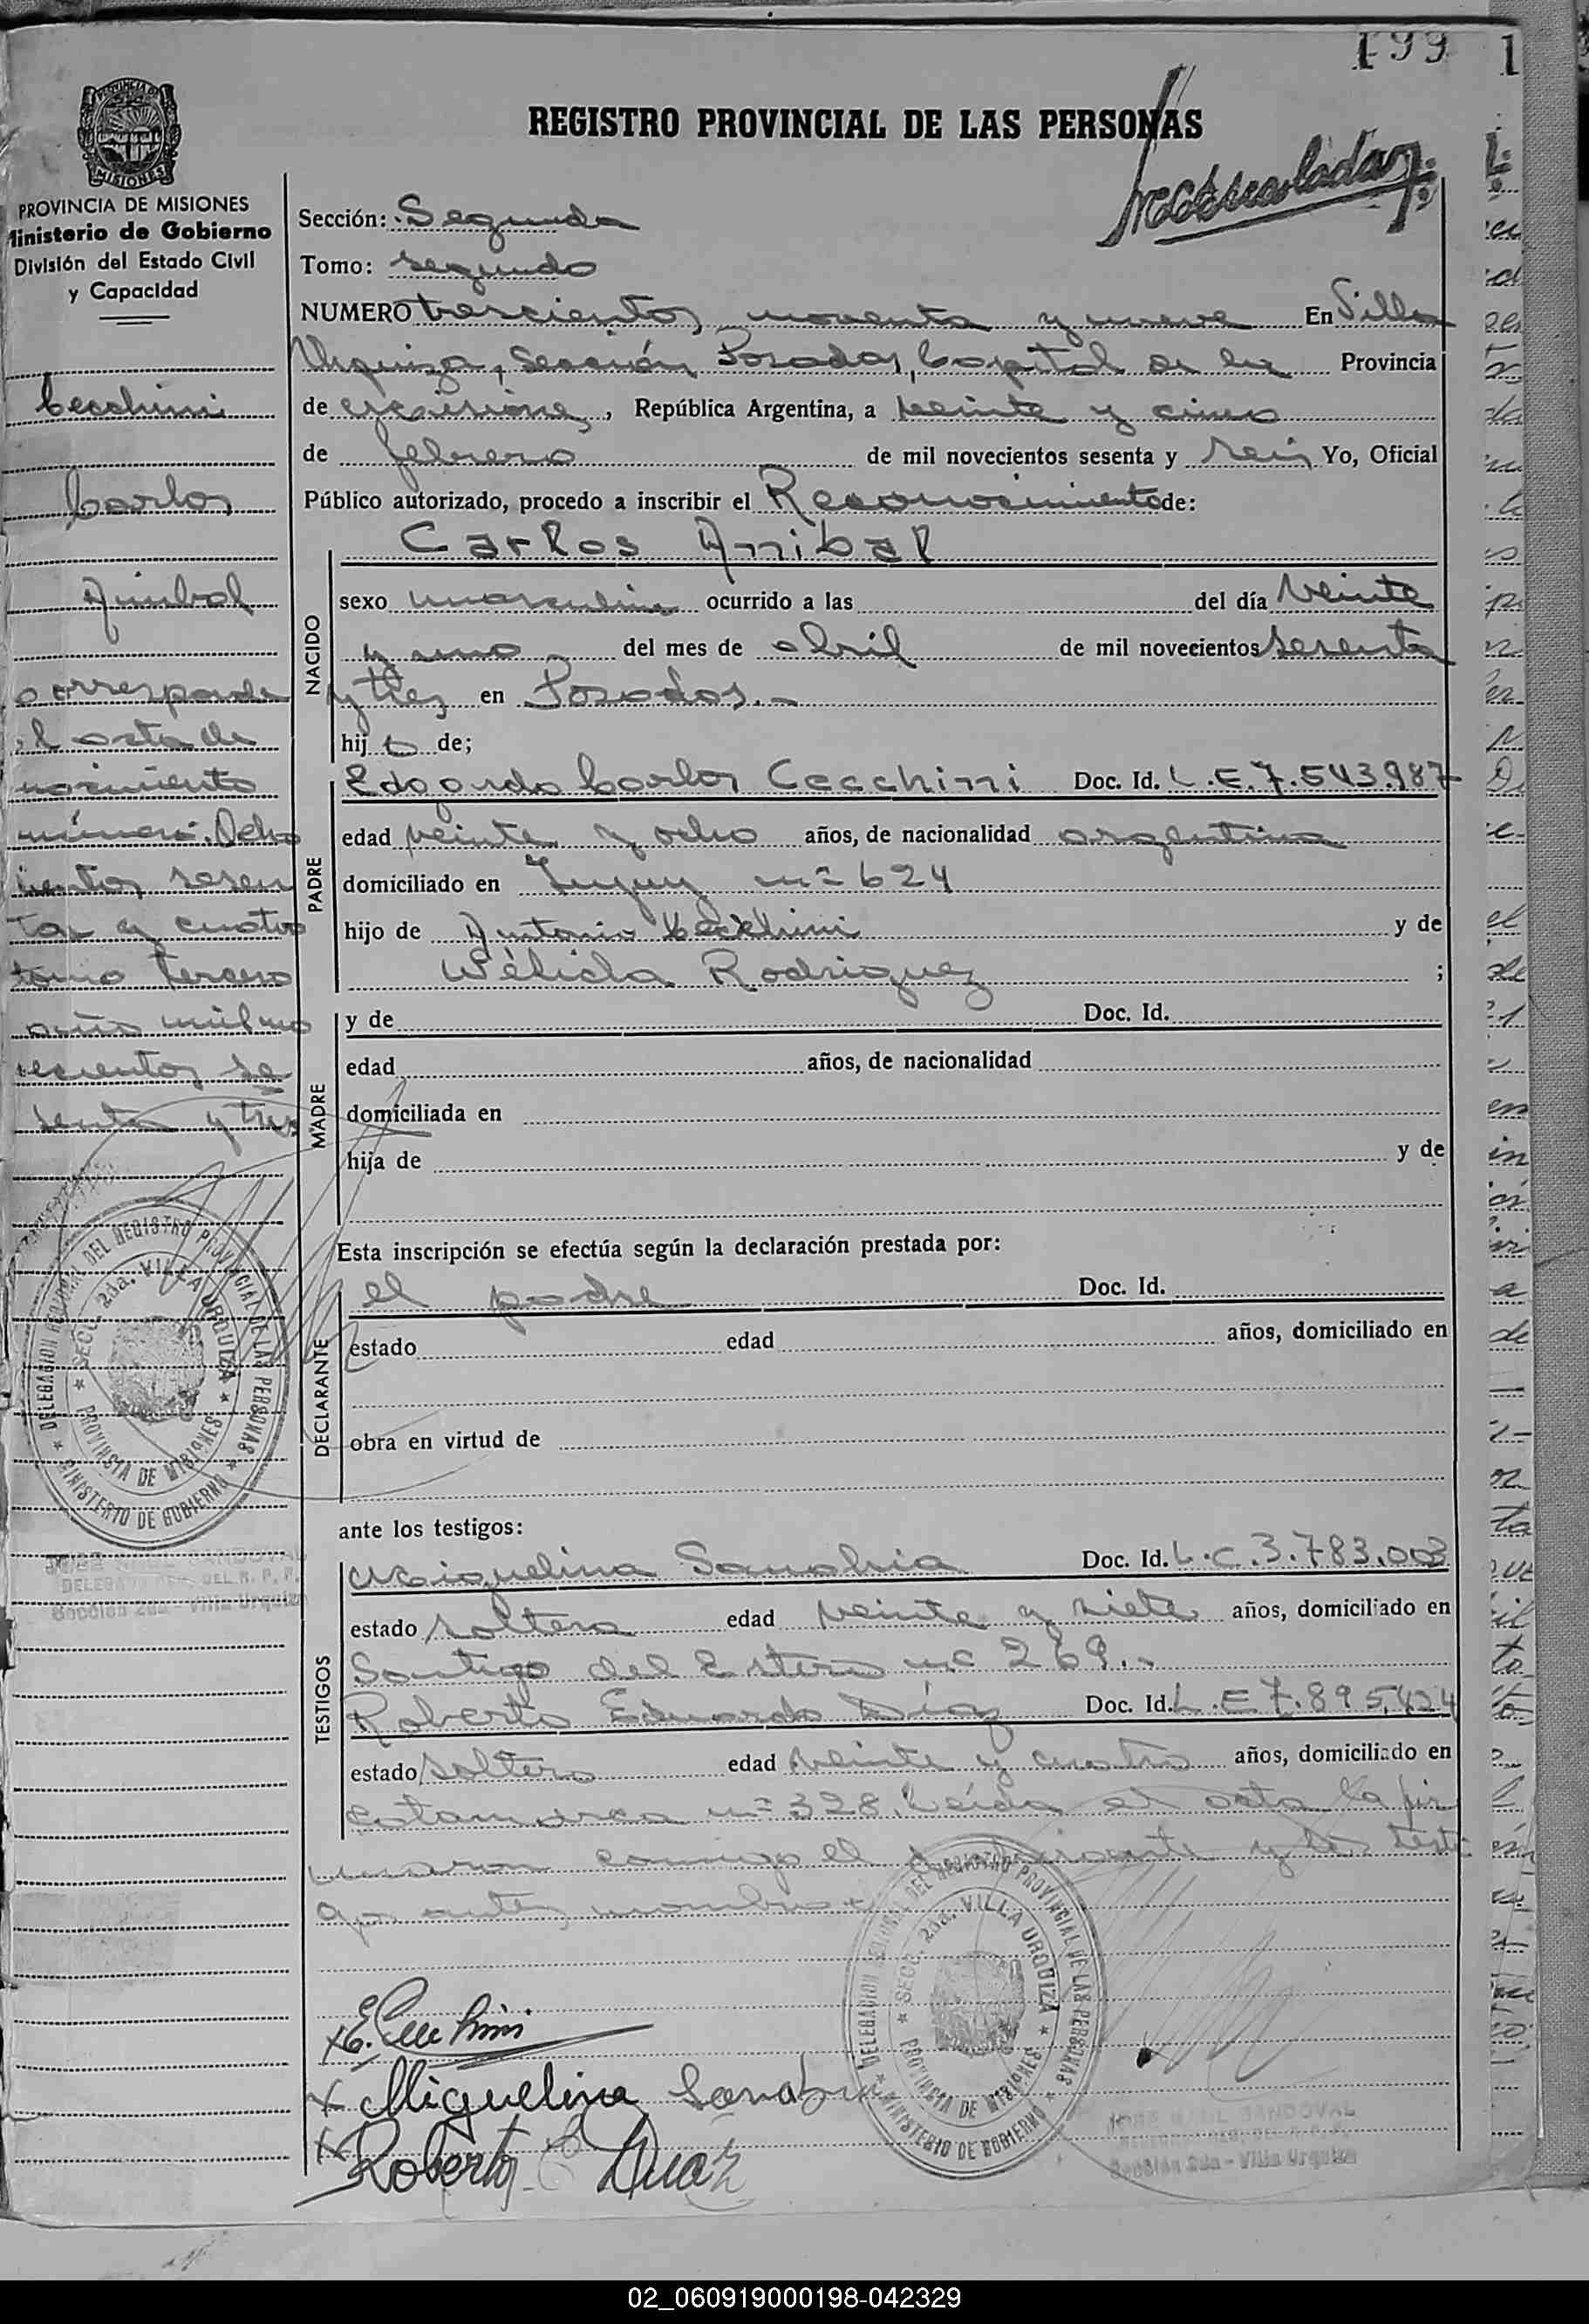 199
REGISTRO PROVINCIAL DE LAS PERSONAS
PROVINCIA DE MISIONES
Ministerio de Gobierno
División del Estado Civil
y Capacidad
Sección: Segunda
Tomo: Segundo
NUMERO trescientos noventa y nueve En Villa
Urquiza, Sección Posadas, Capital de la Provincia
de Misiones, República Argentina, a veinte y cinco
de febrero de mil novecientos sesenta y seis Yo, Oficial
Público autorizado, procedo a inscribir el Reconocimiento de:
Carlos Anibal
NACIDO
sexo masculino ocurrido a las del día veinte
y uno del mes de abril de mil novecientos sesenta
y tres en Posadas.-
hijo de;
PADRE
Edgardo Carlos Cecchini Doc. Id. L.E.7.543.987
edad veinte y ocho años, de nacionalidad argentina
domiciliado en Jujuy nº 624
hijo de Antonio Cecchini y de
Wélida Rodriguez ;
MADRE
y de Doc. Id.
edad años, de nacionalidad
domiciliada en
hija de y de
Esta inscripción se efectúa según la declaración prestada por:
DECLARANTE
el padre Doc. Id.
estado edad años, domiciliado en
obra en virtud de
ante los testigos:
TESTIGOS
Miquelina Sanabria Doc. Id. L.C.3.783.003
estado soltera edad veinte y siete años, domiciliado en
Santiago del Estero nº 269.-
Roberto Eduardo Díaz Doc. Id. L.E 7.895.424
estado soltero edad veinte y cuatro años, domiciliado en
Catamarca nº 328. Leída el acta la fir
maron conmigo el y los testi
gos antes nombra
E. Cecchini
Miguelina Sanabria
Roberto E Diaz
Cecchini
Carlos
Anibal
corresponde
el acta de
nacimiento
número. Ocho
cientos sesen
ta y cuatro
tomo tercero
año mil no
vecientos se
senta y tres
DELEGACION REGIONAL DEL REGISTRO PROVINCIAL DE LAS PERSONAS
SECC. 2da. VILLA URQUIZA
PROVINCIA DE MISIONES
MINISTERIO DE GOBIERNO
SANDOVAL
DEL R. P. P.
Sección 2da - Villa Urquiza
DELEGACION REGIONAL DEL REGISTRO PROVINCIAL DE LAS PERSONAS
SECC. 2da. VILLA URQUIZA
PROVINCIA DE MISIONES
MINISTERIO DE GOBIERNO
SANDOVAL
Sección 2da - Villa Urquiza
02_060919000198-042329